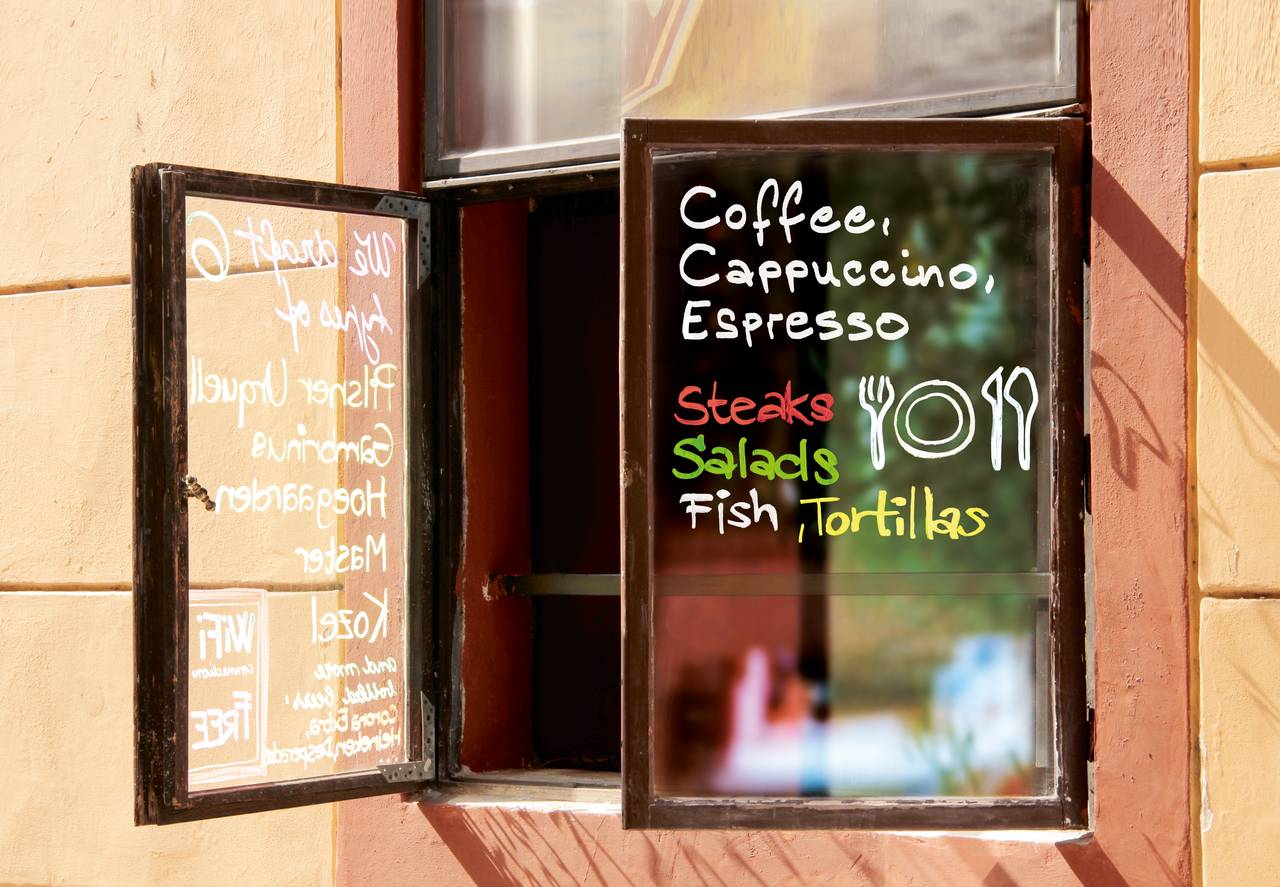 We draft 6
types of
Pilsner Urquell
Gambrinus
Hoegaarden
Master
Kozel
and more
bottled beer:
Corona Extra,
Heineken, Desperados
...
WiFi
connection
FREE
Coffee,
Cappuccino,
Espresso
Steaks
Salads
Fish, Tortillas